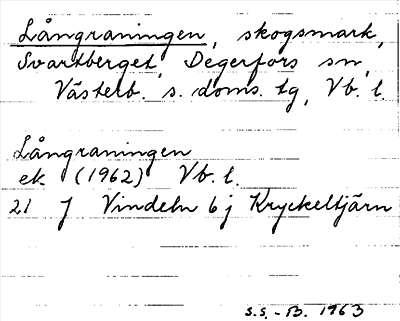 Långraningen, skogsmark,
Svartberget, Degerfors sn,
Västerb. s. doms. tg, Vb. l.
Långraningen
ek (1962) Vb. l.
21 J Vindeln 6j Kryckeltjärn
S.S. - B. 1963